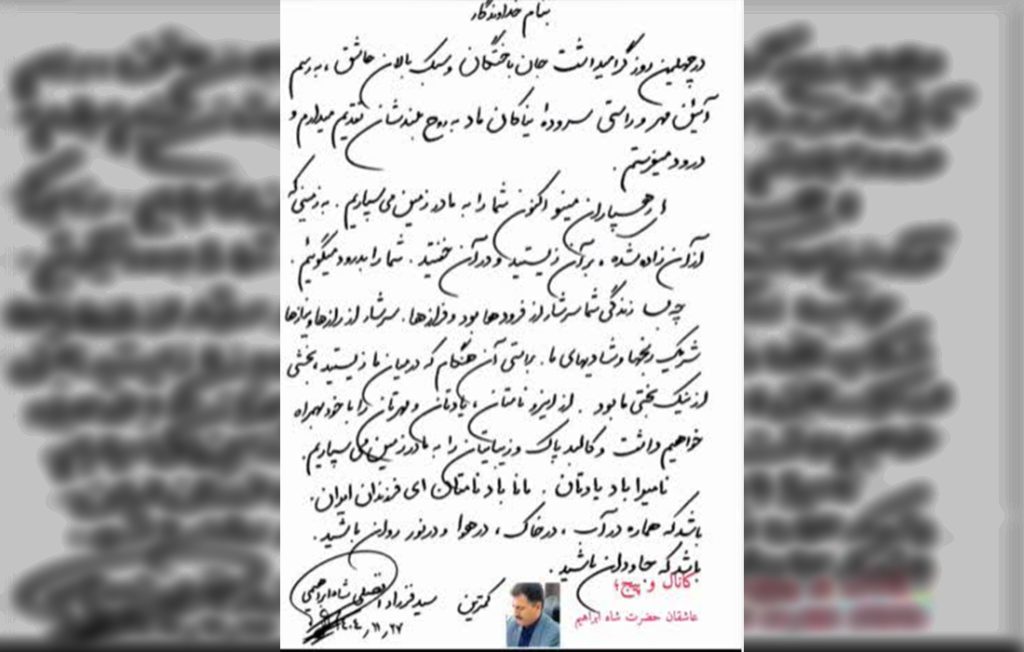 بنام خداوندگار
در چهلمین روز گرامیداشت جان باختگان و سبک بالان عاشق، به رسم
آئین مهر و راستی سرودهٔ نیاکان ما به روح بلندشان تقدیم میدارم و
درود میفرستم.
ای رهسپاران مینو اکنون شما را به مادر زمین می سپاریم. به زمینی که
از آن زاده شده، بر آن زیستید و در آن خفتید. شما را بدرود میگوئیم.
چه لب زندگی شما سرشار از فرودها بود و فرازها. سرشار از رازها و نیازها
شریک رنجها و شادیهای ما. براستی آن هنگام که در میان ما زیستید، بخشی
از نیک بختی ما بود. از اینرو نامتان، یادتان و مهرتان را با خود بهمراه
خواهیم داشت و کالبد پاک و زیباتیان را به مادر زمین می سپاریم.
نامیرا باد یادتان. مانا باد نامتان ای فرزندان ایران.
باشد که هماره در آب، در خاک، در هوا و در نور روان باشید.
باشد که جاودان باشید.
کمترین سید فرزاد افضلی شاه ابراهیمی
۱۴۰۴٫۱۱٫۲۷
کانال و پیج؛
عاشقان حضرت شاه ابراهیم